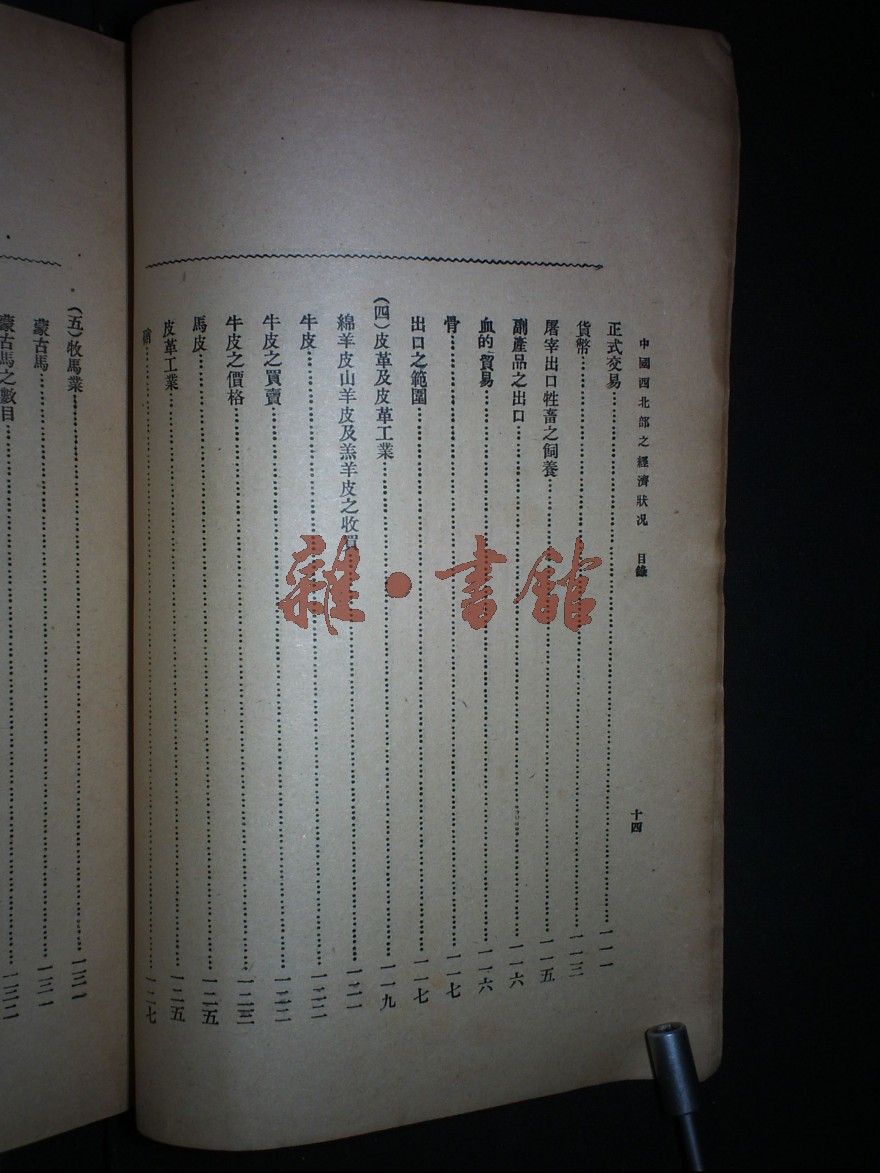 中國西北部之經濟狀况 目錄 十四
正式交易 一一一
貨幣 一一三
屠宰出口牲畜之飼養 一一五
副產品之出口 一一六
血的貿易 一一六
骨 一一七
出口之範圍 一一七
(四)皮革及皮革工業 一一九
綿羊皮山羊皮及羔羊皮之收買 一二一
牛皮 一二二
牛皮之買賣 一二二
牛皮之價格 一二三
馬皮 一二五
皮革工業 一二五
一二七
(五)牧馬業 一三一
蒙古馬 一三一
蒙古馬之數目 一三二
雜·書館